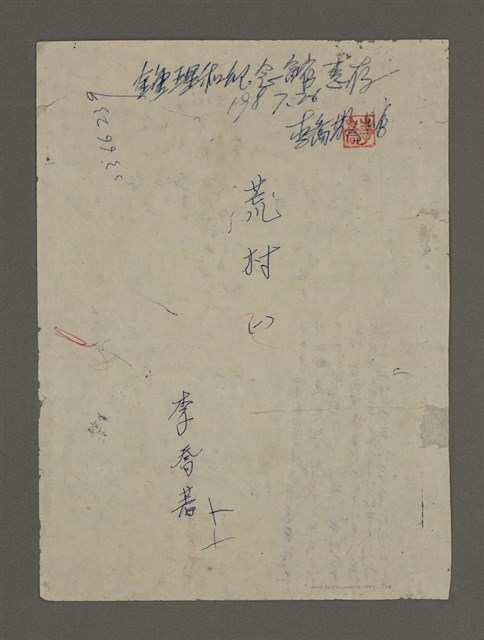 鍾理和紀念館惠存
198 7.26
李喬敬贈
0366239
荒村
(一)
李喬著